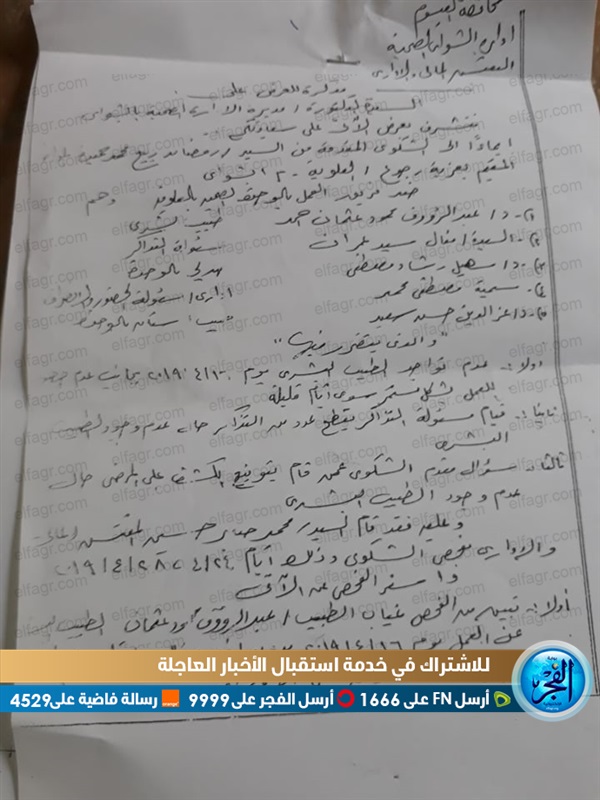 محافظة الفيوم
إدارة الشواشنة الصحية
المفتش المالى والادارى
١
مذكرة للعرض على
السيدة الدكتورة / مديرة الادارة الصحية بالشواشنة
نتشرف بعرض الآتى على سعادتكم
ايماءًا الى الشكوى المقدمة من السيد / رمضان ربيع محمد
المقيم بعزبة رجوع / العلوية - م الشواشنة
ضد مركز العمل بالوحدة الصحية بالعلوية وهم
١- د/ عبد الرؤوف محمود عثمان احمد طبيب بشرى
٢- السيدة / منال سيد عمران مسئولة التذاكر
٣- د/ سهيل رشاد مصطفى صيدلى بالوحدة
٤- سمية مصطفى محمد ادارى / مسئولة الحضور والانصراف
٥- د/ عز الدين حسن سعيد طبيب اسنان بالوحدة
" والذى يتضرر فيها "
اولا: عدم تواجد الطبيب البشرى يوم ٢٠١٩/٤/١٠ بجانب عدم
للعمل بشكل مستمر سوى ايام قليلة
ثانيا: قيام مسئولة التذاكر بقطع عدد من التذاكر حال عدم وجود الطبيب
البشرى
ثالثا: سؤال مقدم الشكوى عمن قام بتوقيع الكشف على المرضى حال
عدم وجود الطبيب البشرى
وعليه فقد قام السيد / محمد حسن المفتش المالى
والادارى بفحص الشكوى وذلك ايام ٤/٢٤ ، ٢٠١٩/٤/٢٨
واسفر الفحص عن الآتى
أولا: تبين من الفحص غياب الطبيب / عبد الرؤوف محمود عثمان الطبيب
عن العمل يوم ٢٠١٩/٤/١٦
للاشتراك في خدمة استقبال الأخبار العاجلة
أرسل FN على 1666 أرسل الفجر على 9999 رسالة فاضية على 4529
بوابة الفجر
elfagr.com